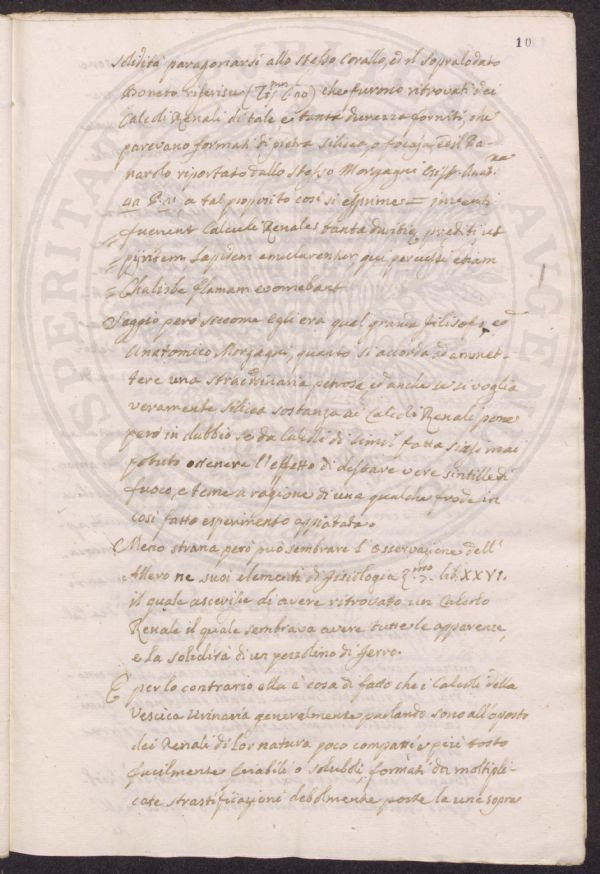 10
solidità paragonarsi allo stesso Corallo, ed il sopralodato
Boneto riferisce che furono ritrovati dei
Calcoli Renali di tale e tanta durezza forniti che
parevano formati di pietra silicea, o focaja
narolo riportato dallo stesso Morgagni
4a a tal proposito così si esprime = inventi
= fuerunt Calculi Renales tanta prediti ut
= Lapidem percussi etiam
= Chalibe flamam evomebant
Saggio però siccome Egli era quel grande filosofo, ed
Anatomico Morgagni, quanto si accorda ad ammet-
tere una straordinaria petrosa ed anche se si voglia
veramente silicea sostanza ai Calcoli Renali pone
però in dubbio se da Calcoli di simil fatta siasi mai
potuto ottenere l'effetto di destare vere sintille di
fuoco, e teme a ragione di una qualche frode in
così fatto esperimento appiatata.
Meno strana però può sembrare l'osservazione dell'
Allero ne suoi elementi di fisiologia lib. XXVI.
il quale asserisce di avere ritrovato un Calcolo
Renale il quale sembrava avere tutte le apparenze,
e la solidità di un pezzolino di ferro.
E per lo contrario ella è cosa di fatto che i Calcoli della
Vescica Urinaria generalmente parlando sono all'oposto
dei Renali di lor natura poco compatti e più tosto
facilmente friabili o solubili formati da moltipli-
cate stratificazioni debolmente poste le une sopra